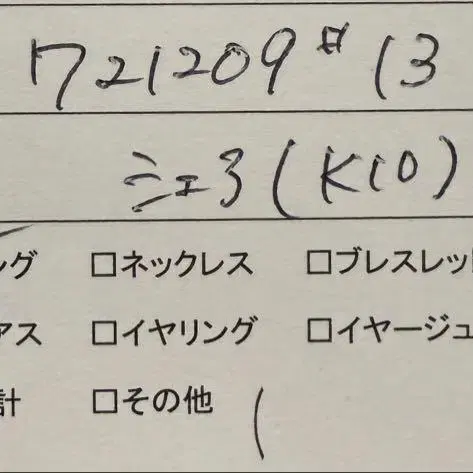 1721209 #13
ミエ3 (K10)
ング □ネックレス □ブレスレット
アス □イヤリング □イヤージュ
計 □その他 (